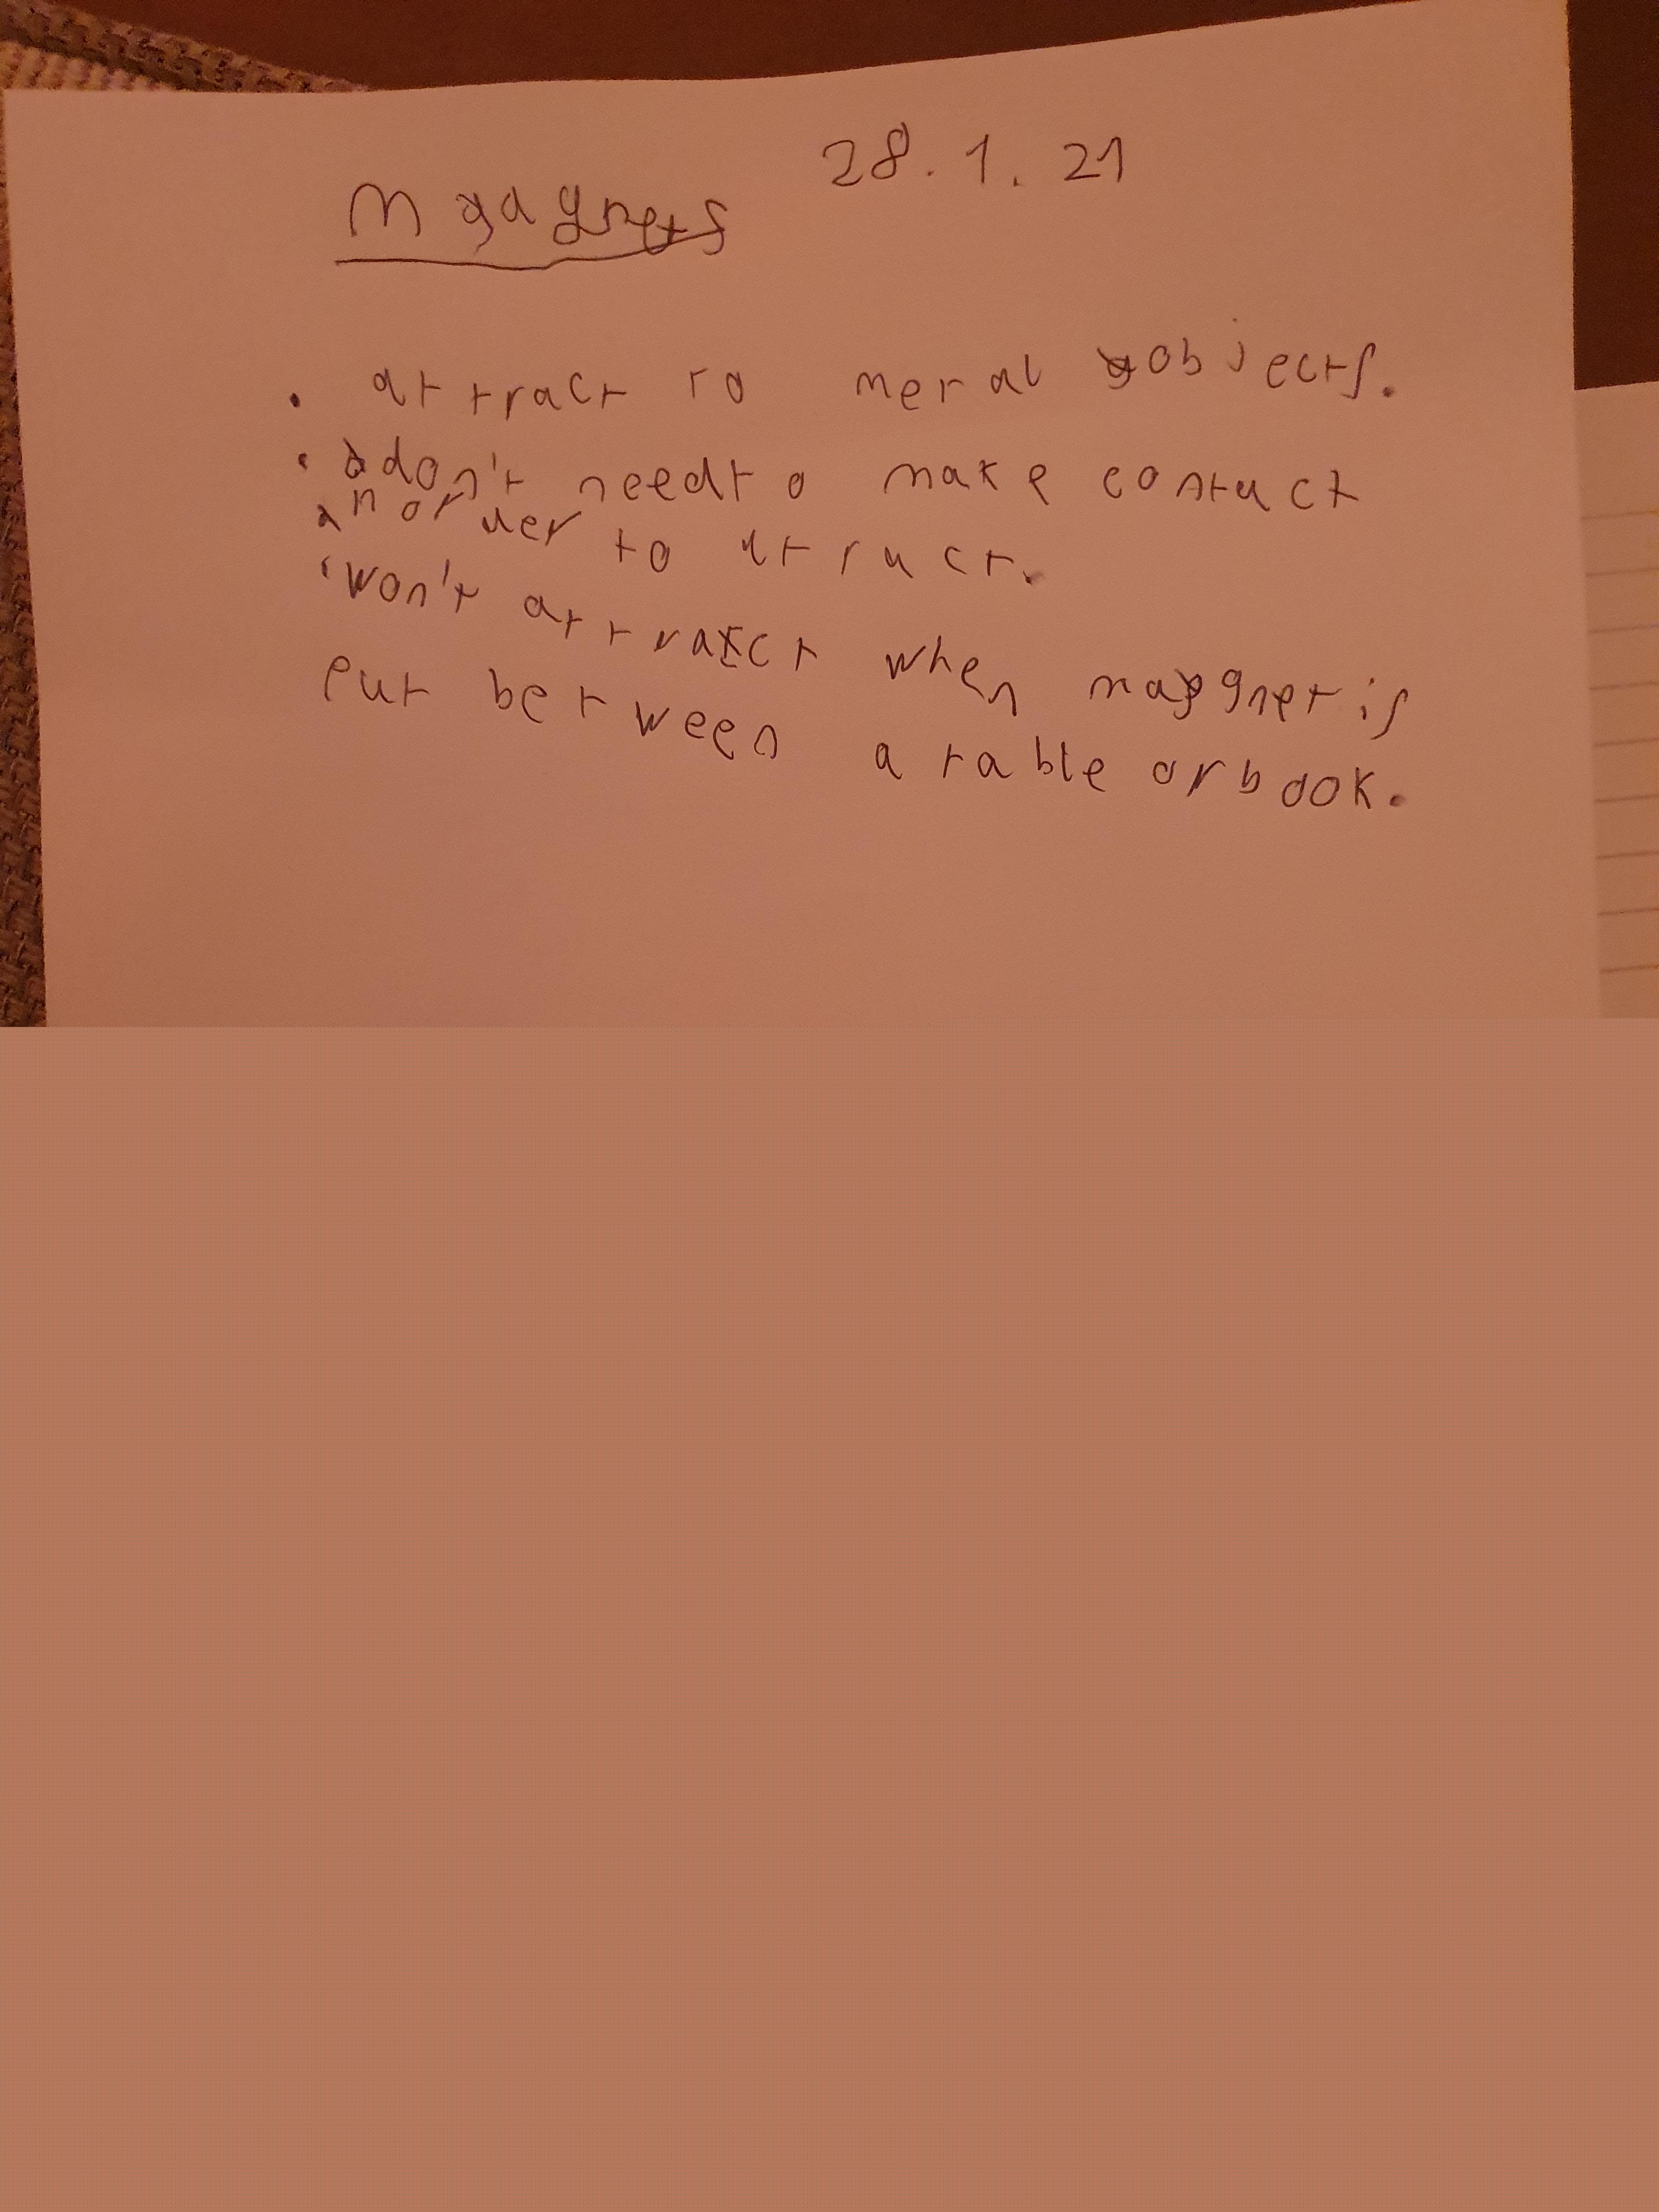 28.1.21
Magnets
• attract to metal objects.
• don't need to make contact
an order to attract.
• won't attract when magnet is
put between a table or book.